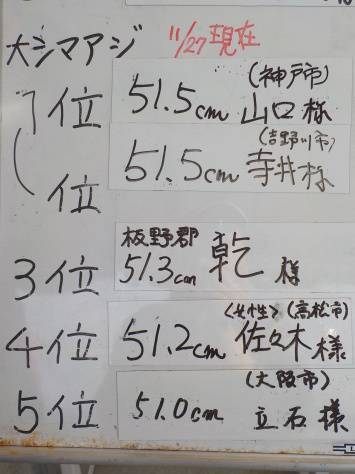 大シマアジ 11/27現在
(神戸市)
1位 51.5cm 山口様
(吉野川市)
位 51.5cm 寺井様
板野郡
3位 51.3cm 乾 様
<女性>(高松市)
4位 51.2cm 佐々木様
(大阪市)
5位 51.0cm 立石様